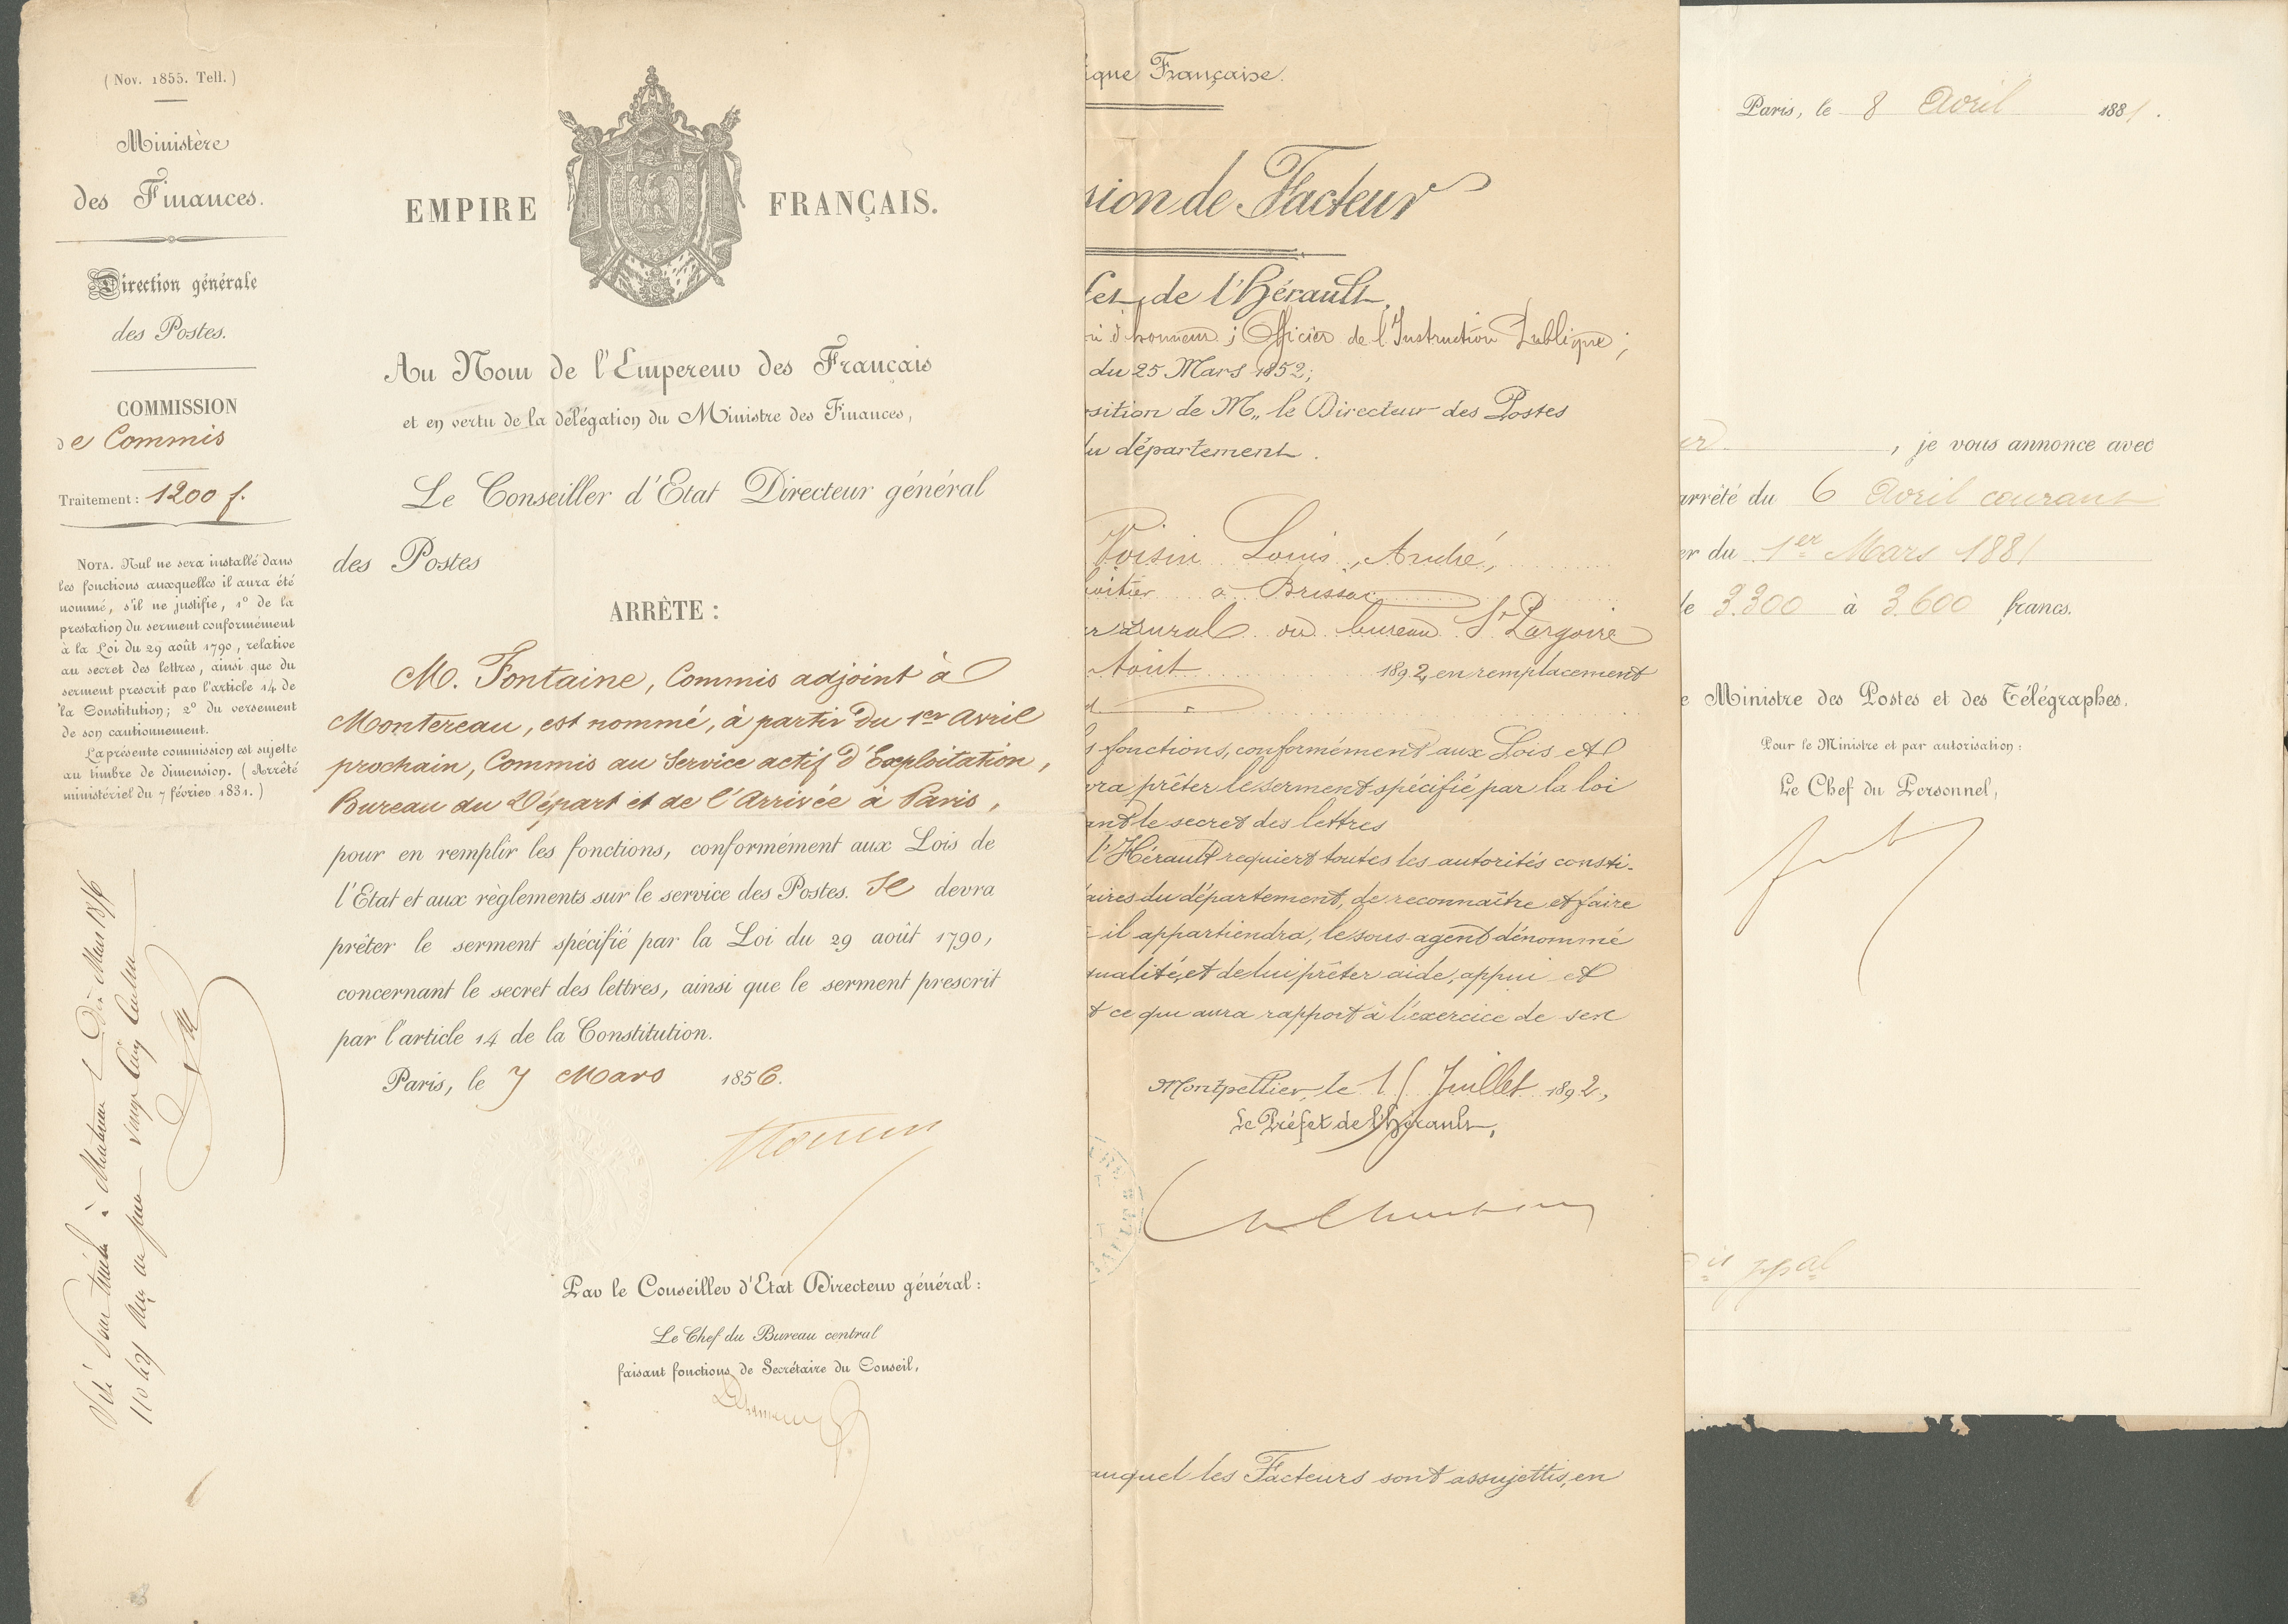 ( Nov. 1855. Tell. )
Ministère
des Finances.
Direction générale
des Postes.
COMMISSION
de Commis
Traitement : 1200 f.
NOTA. Nul ne sera installé dans
les fonctions auxquelles il aura été
nommé, s'il ne justifie, 1° de la
prestation du serment conformément
à la Loi du 29 août 1790, relative
au secret des lettres, ainsi que du
serment prescrit par l'article 14 de
la Constitution; 2° du versement
de son cautionnement.
La présente commission est sujette
au timbre de dimension. ( Arrêté
ministériel du 7 février 1831. )
EMPIRE FRANÇAIS.
Au Nom de l'Empereur des Français
et en vertu de la délégation du Ministre des Finances,
Le Conseiller d'Etat Directeur général
des Postes
ARRÊTE :
M. Fontaine, Commis adjoint à
Montereau, est nommé, à partir du 1er avril
prochain, Commis au Service actif d'Exploitation,
Bureau du Départ et de l'Arrivée à Paris,
pour en remplir les fonctions, conformément aux Lois de
l'Etat et aux règlements sur le service des Postes. Il devra
prêter le serment spécifié par la Loi du 29 août 1790,
concernant le secret des lettres, ainsi que le serment prescrit
par l'article 14 de la Constitution.
Paris, le 7 Mars 1856.
Par le Conseiller d'Etat Directeur général :
Le Chef du Bureau central
faisant fonctions de Secrétaire du Conseil,
ique Française.
sion de Facteur
fet de l'Hérault,
d'honneur ; Officier de l'Instruction Publique ;
du 25 Mars 1852;
sition de M. le Directeur des Postes
du département.
Voisin Louis, André,
à Brissac
r rural au bureau St Pargoire
Août 1892, en remplacement
s fonctions, conformément aux Lois et
vra prêter le serment spécifié par la loi
ant le secret des lettres
l'Hérault requiert toutes les autorités consti-
aires du département, de reconnaître et faire
il appartiendra, le sous-agent dénommé
qualité, et de lui prêter aide, appui et
t ce qui aura rapport à l'exercice de ses
Montpellier, le 15 Juillet 1892,
Le Préfet de l'Hérault,
auquel les Facteurs sont assujettis, en
Paris, le 8 Avril 1881.
, je vous annonce avec
arrêté du 6 Avril courant
er du 1er Mars 1881
de 3.300 à 3.600 francs.
e Ministre des Postes et des Télégraphes.
Pour le Ministre et par autorisation :
Le Chef du Personnel,
is ppal